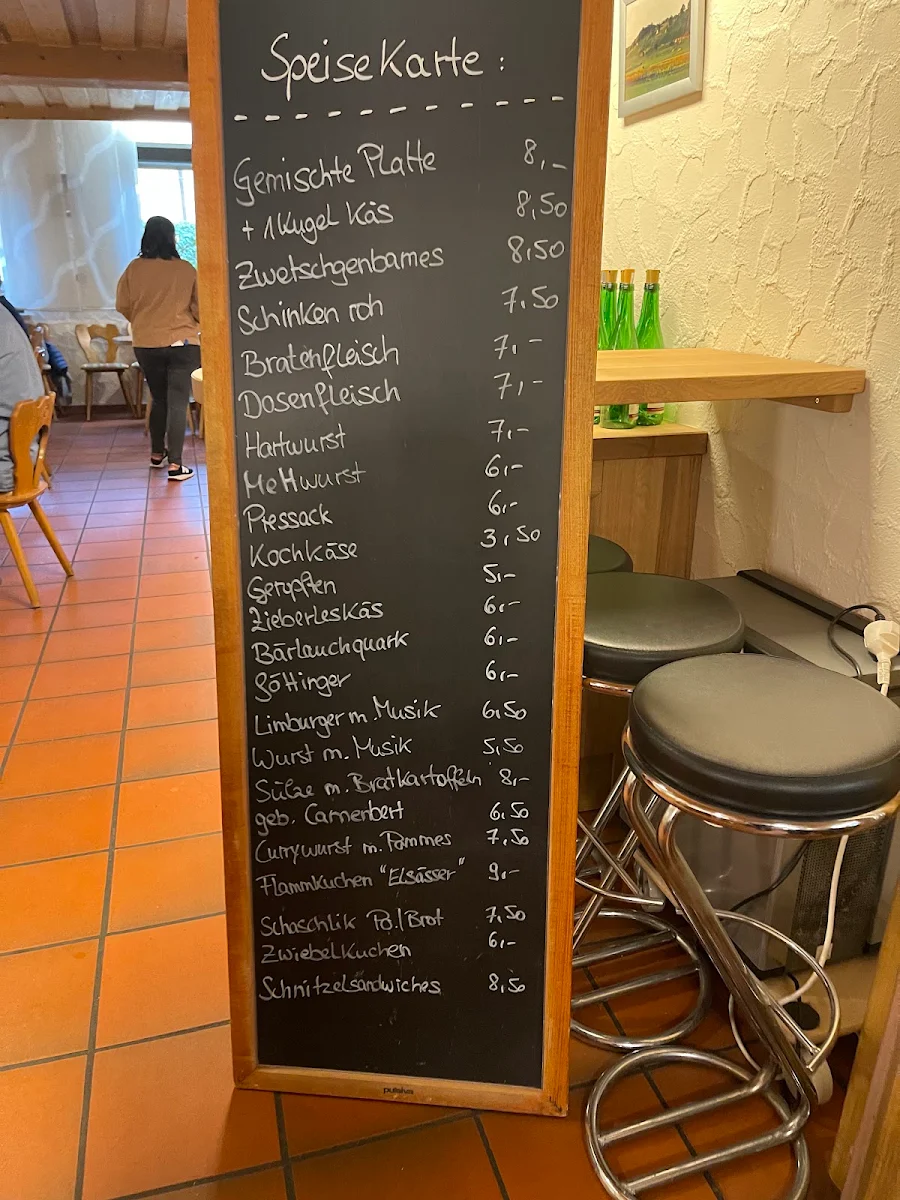 SpeiseKarte :
Gemischte Platte 8,-
+ 1 Kugel Käs 8,50
Zwetschgenbames 8,50
Schinken roh 7,50
Bratenfleisch 7,-
Dosenfleisch 7,-
Hartwurst 7,-
Mettwurst 6,-
Pressack 6,-
Kochkäse 3,50
Gerupften 5,-
Zieberleskäs 6,-
Bärlauchquark 6,-
Göttinger 6,-
Limburger m. Musik 6,50
Wurst m. Musik 5,50
Sülze m. Bratkartoffeln 8,-
geb. Camenbert 6,50
Currywurst m. Pommes 7,50
Flammkuchen "Elsässer" 9,-
Schaschlik Po./Brot 7,50
Zwiebelkuchen 6,-
Schnitzelsandwiches 8,50